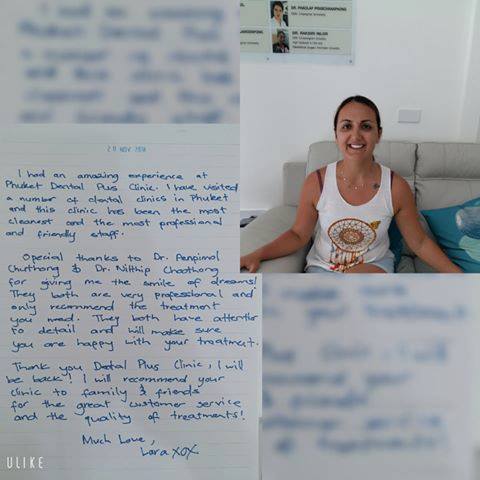 DR. PAROLAP PRABCHAMPHONG
DR. RAKSIRI INLOR
20 NOV 2018
I had an amazing experience at
Phuket Dental Plus Clinic. I have visited
a number of dental clinics in Phuket
and this clinic has been the most
cleanest and the most professional
and friendly staff.
Special thanks to Dr.
& Dr. Nitthip Chaothong
for giving me the smile of dreams!
They both are very professional and
only recommend the treatment
you need. They both have attention
to detail and will make sure
you are happy with your treatment.
Thank you Dental Plus Clinic, I will
be back! I will recommend your
clinic to family & friends
for the great customer service
and the quality of treatments!
Much Love,
Lara XOX
ULIKE